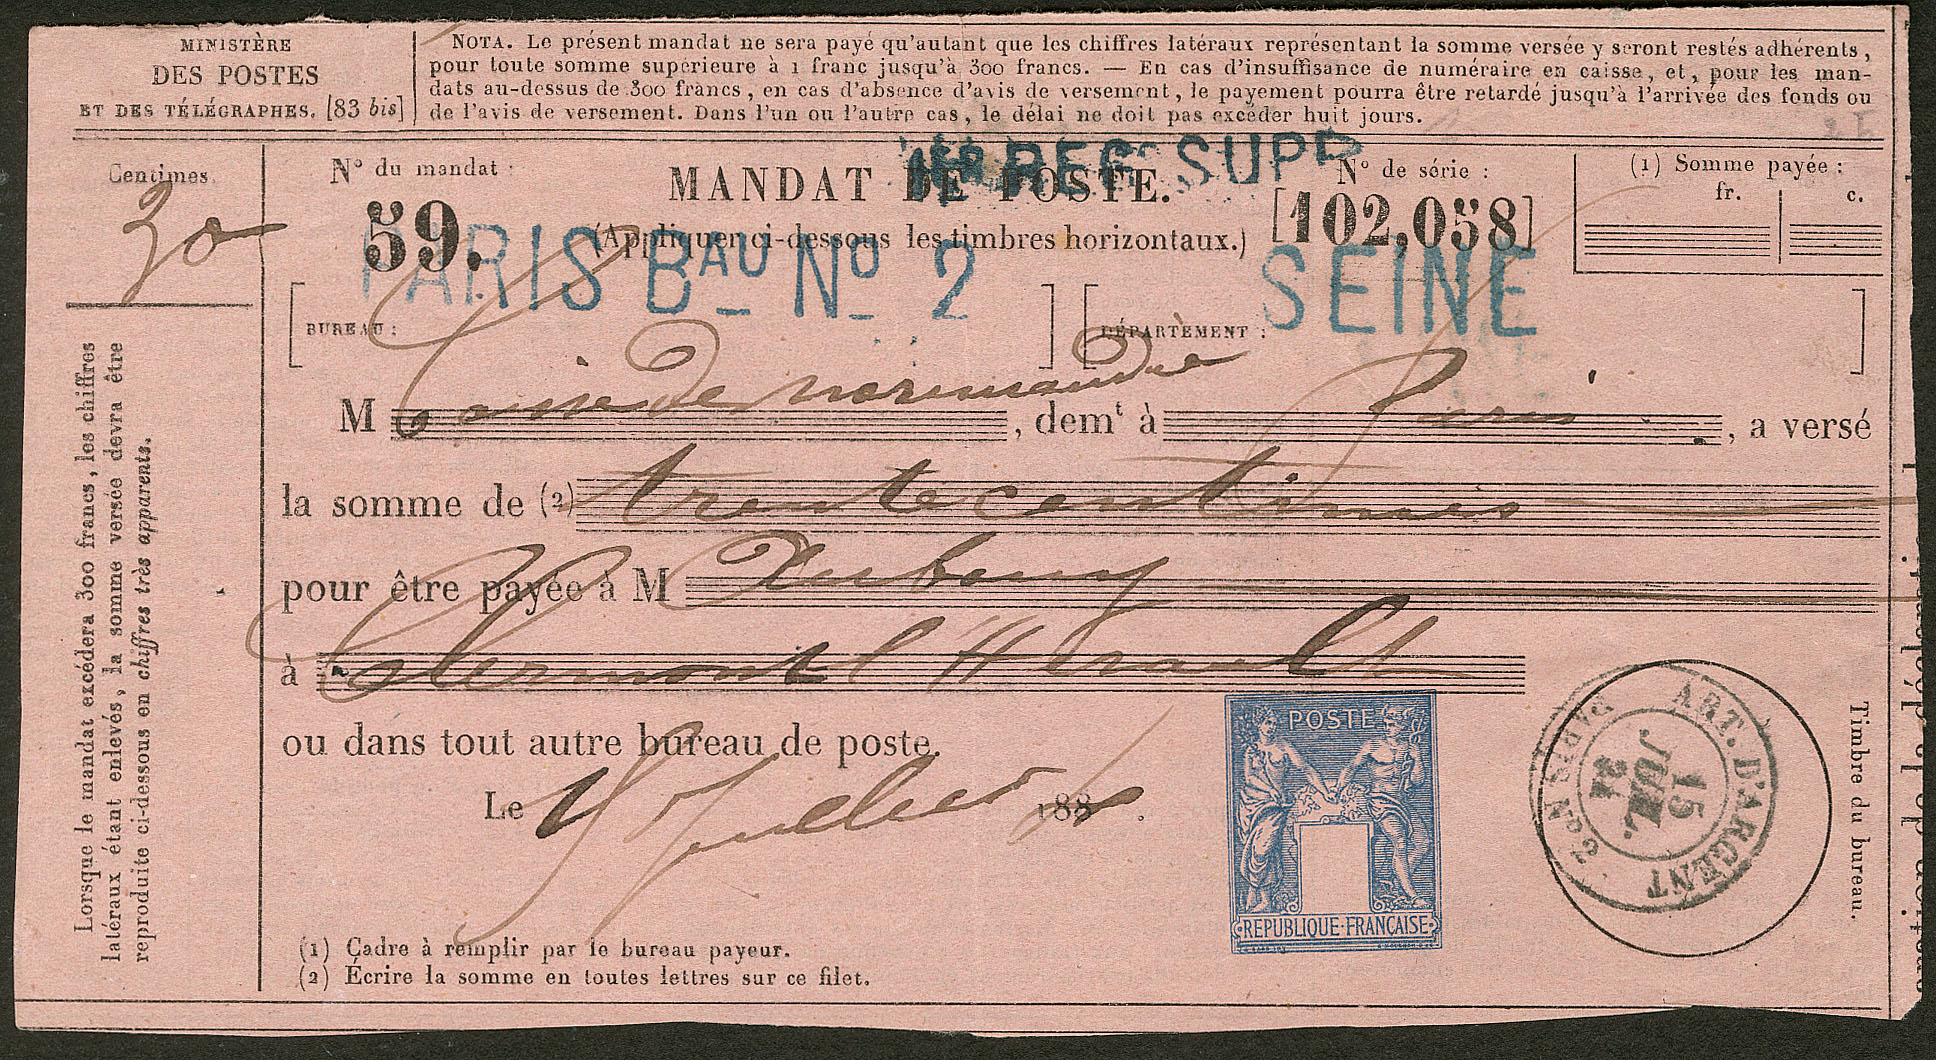 MINISTÈRE
DES POSTES
ET DES TÉLÉGRAPHES. [83 bis]
NOTA. Le présent mandat ne sera payé qu'autant que les chiffres latéraux représentant la somme versée y seront restés adhérents,
pour toute somme supérieure à 1 franc jusqu'à 300 francs. — En cas d'insuffisance de numéraire en caisse, et, pour les man-
dats au-dessus de 300 francs, en cas d'absence d'avis de versement, le payement pourra être retardé jusqu'à l'arrivée des fonds ou
de l'avis de versement. Dans l'un ou l'autre cas, le délai ne doit pas excéder huit jours.
Centimes.
30
N° du mandat :
59.
MANDAT DE POSTE.
SUPP
(Appliquer ci-dessous les timbres horizontaux.)
N° de série :
[102,058]
(1) Somme payée :
fr. c.
PARIS BAU No 2
SEINE
BUREAU :
DÉPARTEMENT :
M Caisse de normandie, demt à Paris, a versé
la somme de (2) trente centimes
pour être payée à M
à Clermont l'Hérault
ou dans tout autre bureau de poste.
Le 15 Juillet 188
POSTE
REPUBLIQUE FRANÇAISE
PARIS No 2
ART. D'ARGENT
15
JUIL.
Timbre du bureau.
(1) Cadre à remplir par le bureau payeur.
(2) Écrire la somme en toutes lettres sur ce filet.
Lorsque le mandat excédera 300 francs, les chiffres
latéraux étant enlevés, la somme versée devra être
reproduite ci-dessous en chiffres très apparents.